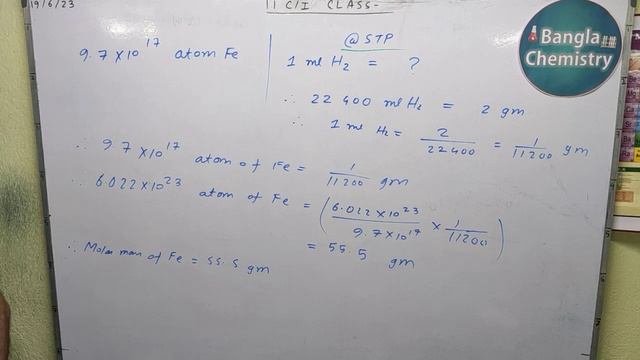 19/6/23
11 C/I CLASS-
Bangla
Chemistry
9.7 × 10^17 atom Fe
@ STP
1 ml H₂ = ?
∴ 22 400 ml H₂ = 2 gm
∴ 1 ml H₂ = 2/22400 = 1/11200 gm
∴ 9.7 × 10^17 atom of Fe = 1/11200 gm
∴ 6.022 × 10^23 atom of Fe = (6.022 × 10^23 / 9.7 × 10^17 × 1/11200)
= 55.5 gm
∴ Molar mass of Fe = 55.5 gm